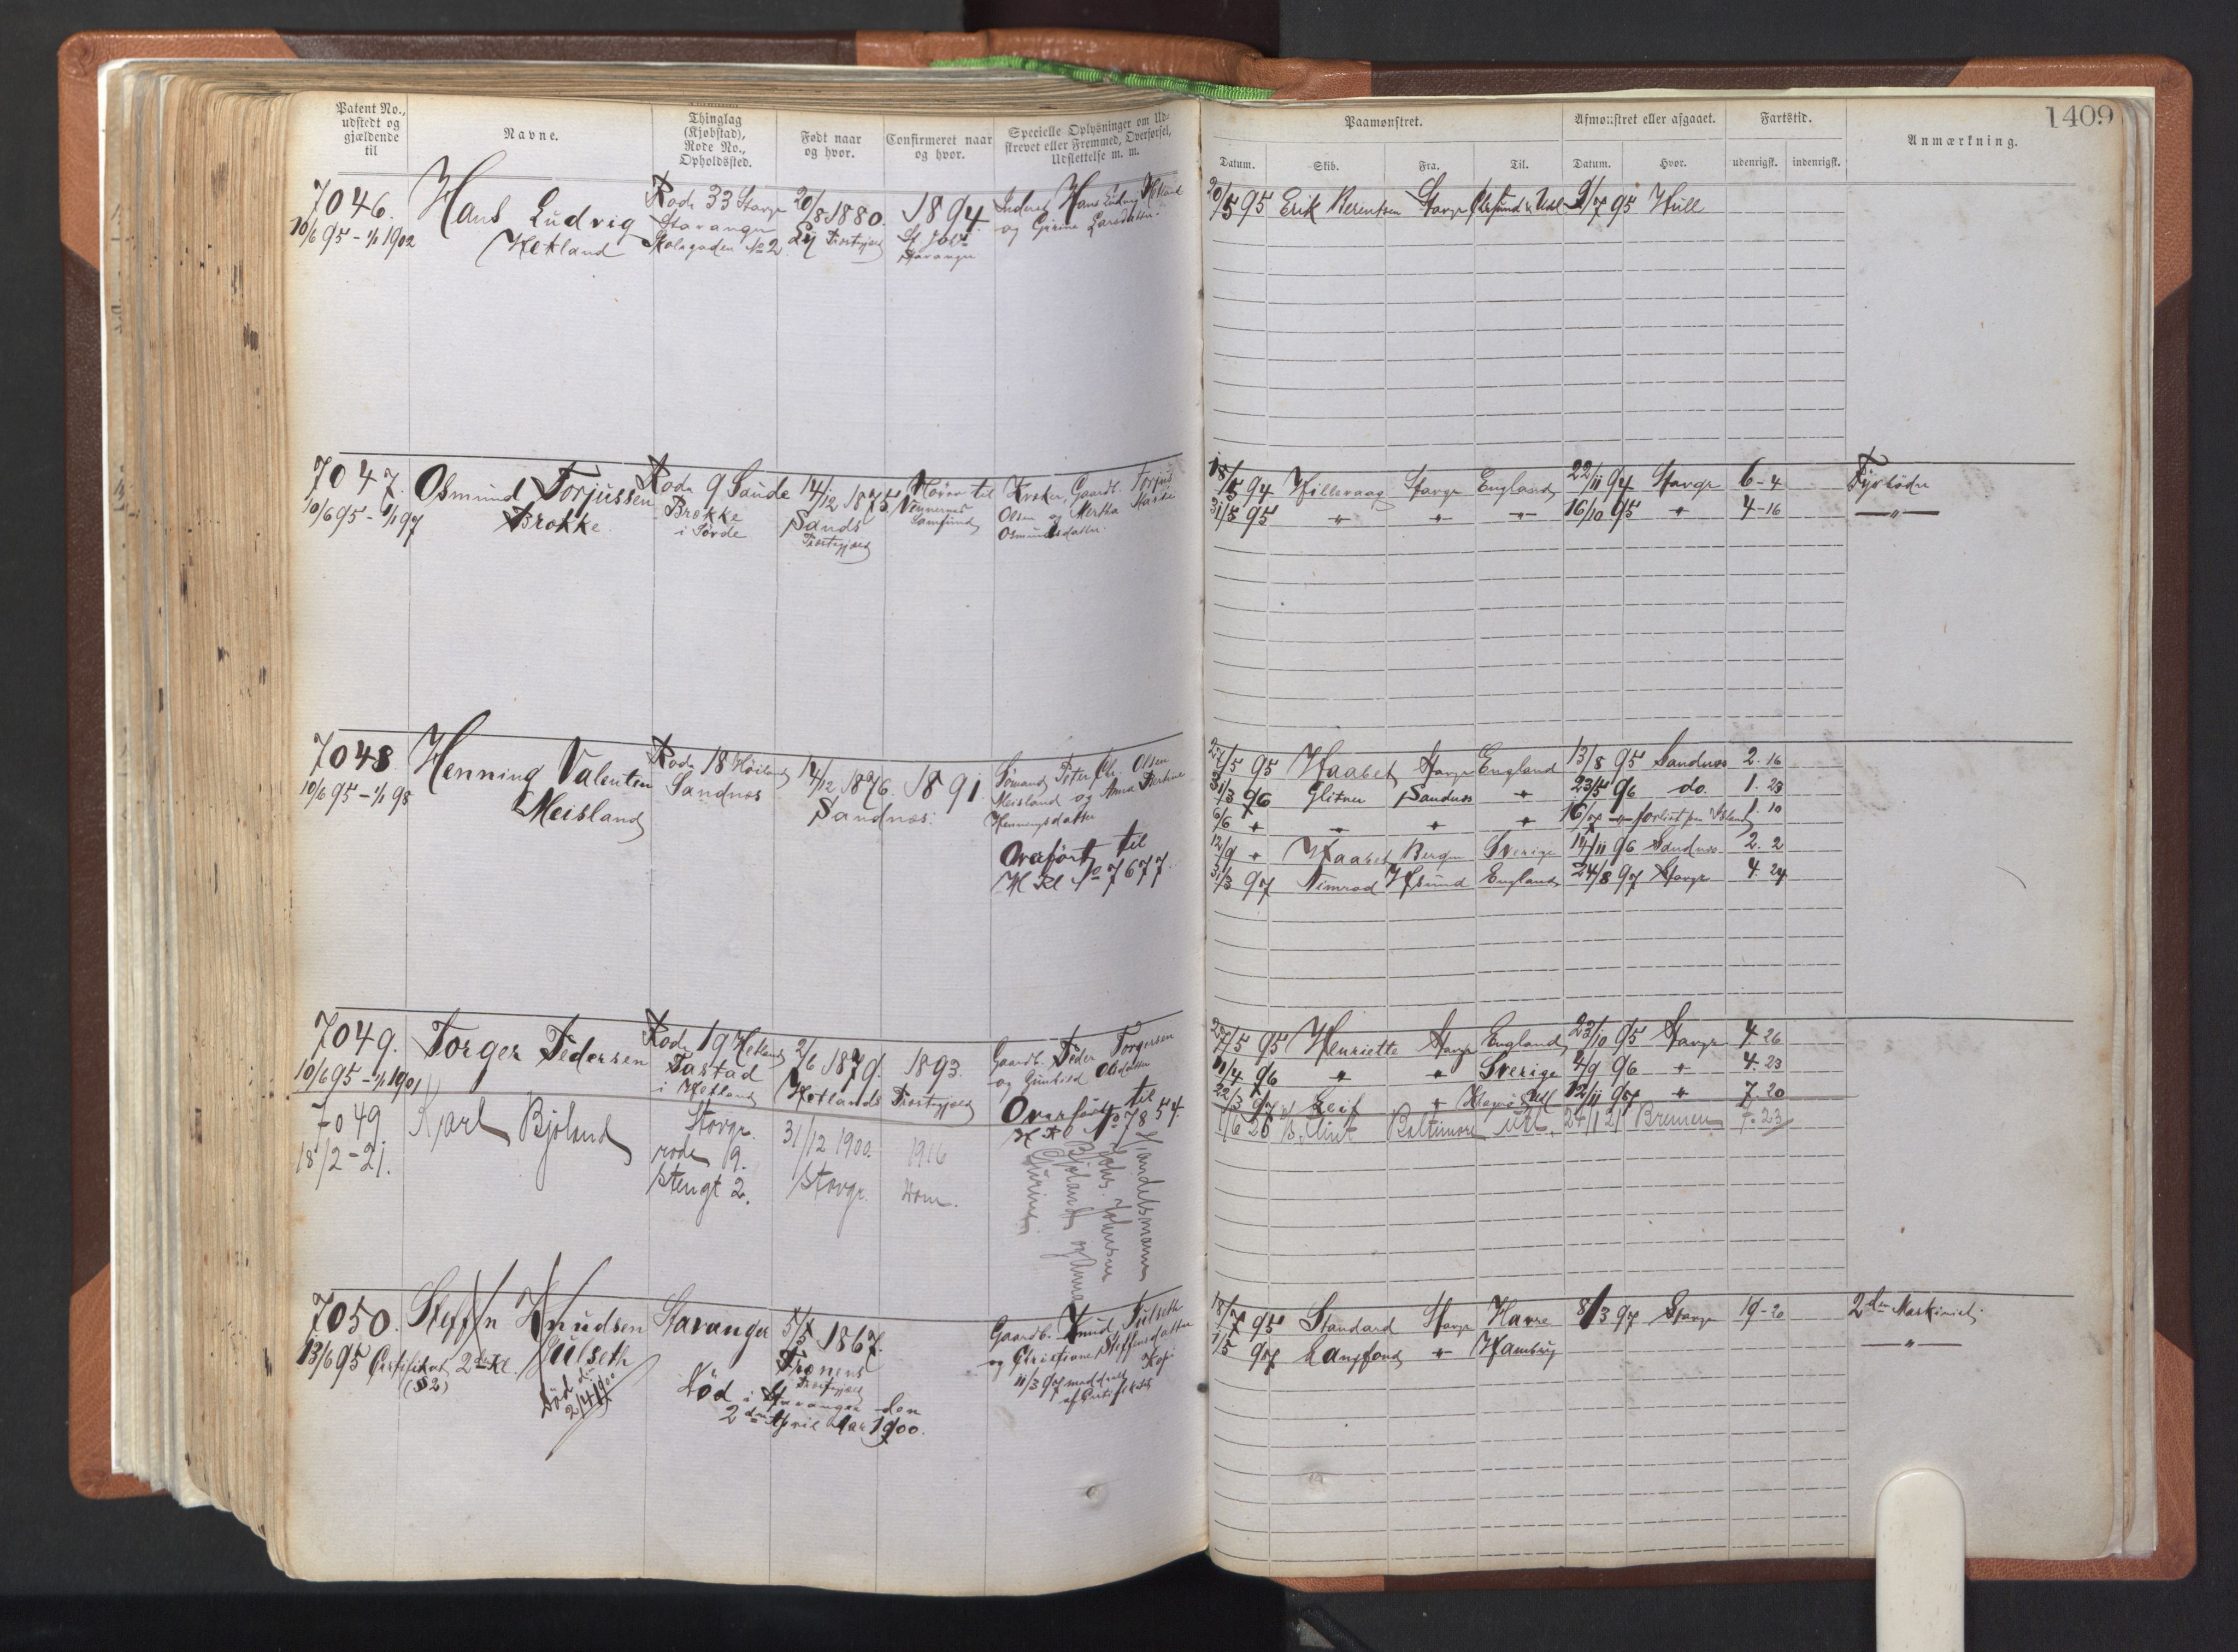 1409
Patent No., udstedt og gjældende til
Navne.
Thinglag (Kjøbstad), Rode No., Opholdssted.
Født naar og hvor.
Confirmeret naar og hvor.
Specielle Oplysninger om Udskrevet eller Fremmed, Overførsel, Udslettelse m. m.
Paamønstret.
Afmønstret eller afgaaet.
Fartstid.
Anmærkning.
Datum. Skib. Fra. Til. Datum. Hvor. udenrigsk. indenrigsk.
7046. Hans Ludvig Rode 33 Stavgr 20/8 1880. 1894.
10/6 95 - 1/1 1902 Hetland Stavanger
Skolegaden No 2
Stavanger
og Larsdatter.
20/5 95 Erik Berentsen Stavgr 9/7 95 Hull
7047. Osmund Torjussen Rode 9 Saude 14/12 1875
10/6 95 - 1/1 97 Brokke Brokke Sands
Præstegjæld
Gaardb. Torjus
Olsen og Mertha
Osmundsdatter.
18/5 94 Hillevaag Stavgr England 22/11 94 Stavgr 6-4 Fyrbøder
31/5 95 " " " 16/10 95 " 4-16 — " —
7048. Henning Valentin Rode 18 Høiland 14/12 1876. 1891.
10/6 95 - 1/1 98 Meisland Sandnes Sandnes.
Sømand Peter Chr. Olsen
Meisland og Anna
Henningsdatter
Overført til
H Kl No 7677.
27/5 95 Haabet Stavgr England 13/8 95 Sandnes 2. 16
31/3 96 Glitner Sandnes " 23/5 96 do. 1. 23
6/6 " " " " 16/7 " forlist 1. 10
12/9 " Haabet Bergen Sverige 14/11 96 Sandnes 2. 2
31/3 97 Nimrod England 24/8 97 Stavgr 4. 24
7049. Torger Pedersen Rode 19 Hetland 2/6 1879. 1893.
10/6 95 - 1/1 1901 Tastad
i Hetland Hetlands Præstegjæld
Gaardb. Peder Torgersen
og Gunhild Olsdatter
Overført til
H Kl No 7854.
27/5 95 Henriette Stavgr England 23/10 95 Stavgr 4. 26
11/4 96 " " Sverige 4/9 96 " 4. 23
22/3 97 Leif " 12/11 97 " 7. 20
7049 Karl Bjøland Stavgr. 31/12 1900. 1916
18/2-21. rode 19. Stavgr. Dom.
Stengt 2.
Handelsmann
Johs. Johnsen
Bjøland og Anna
1/6 20 Baltimore utl. 24/1 21 Bremen 7-23
7050. Steffen Knudsen Stavanger 5/5 1867.
13/6 95 Certifikat 2den Kl. Gulseth
(§2)
Død d.
2/4 1900
Præstegjæld
Død i Stavanger den
2den April Aar 1900.
Gaardb. Knud Gulseth
og Christiane Steffensdatter
11/3 97 meddelt Kopi
af Certifikatet
18/7 95 Standard Stavgr Havre 8/3 97 Stavgr 19-20 2den Maskinist.
1/5 97 Langfond " Hamburg — " —